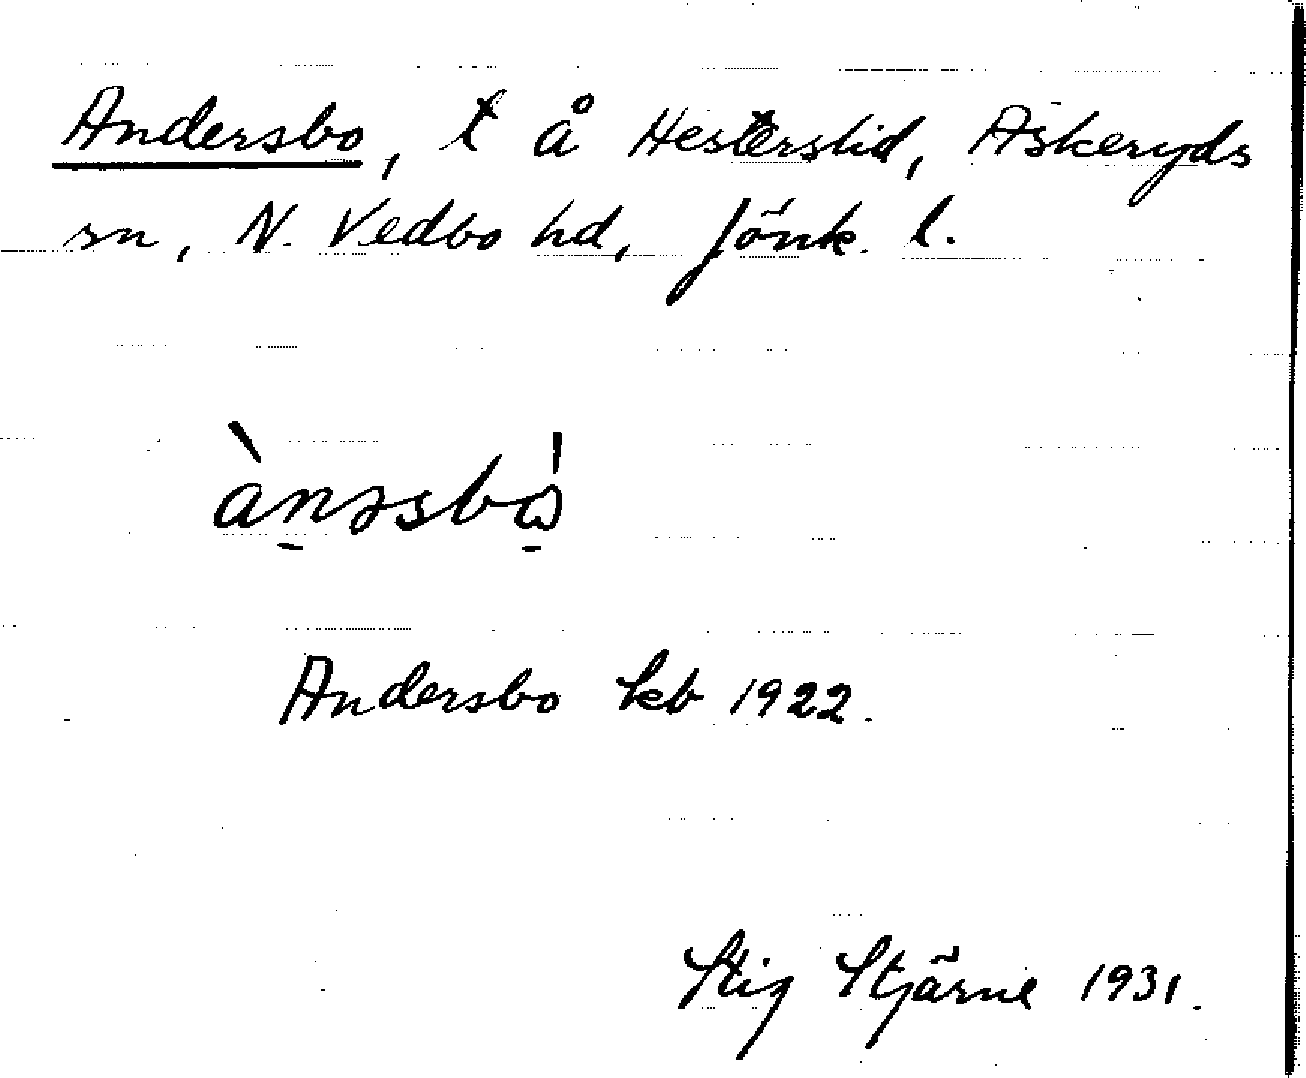 Andersbo, t å Hesterslid, Askeryds
sn, N. Vedbo hd, Jönk. l.
ànəsbo̠
Andersbo kb 1922.
Stig Stjärne 1931.